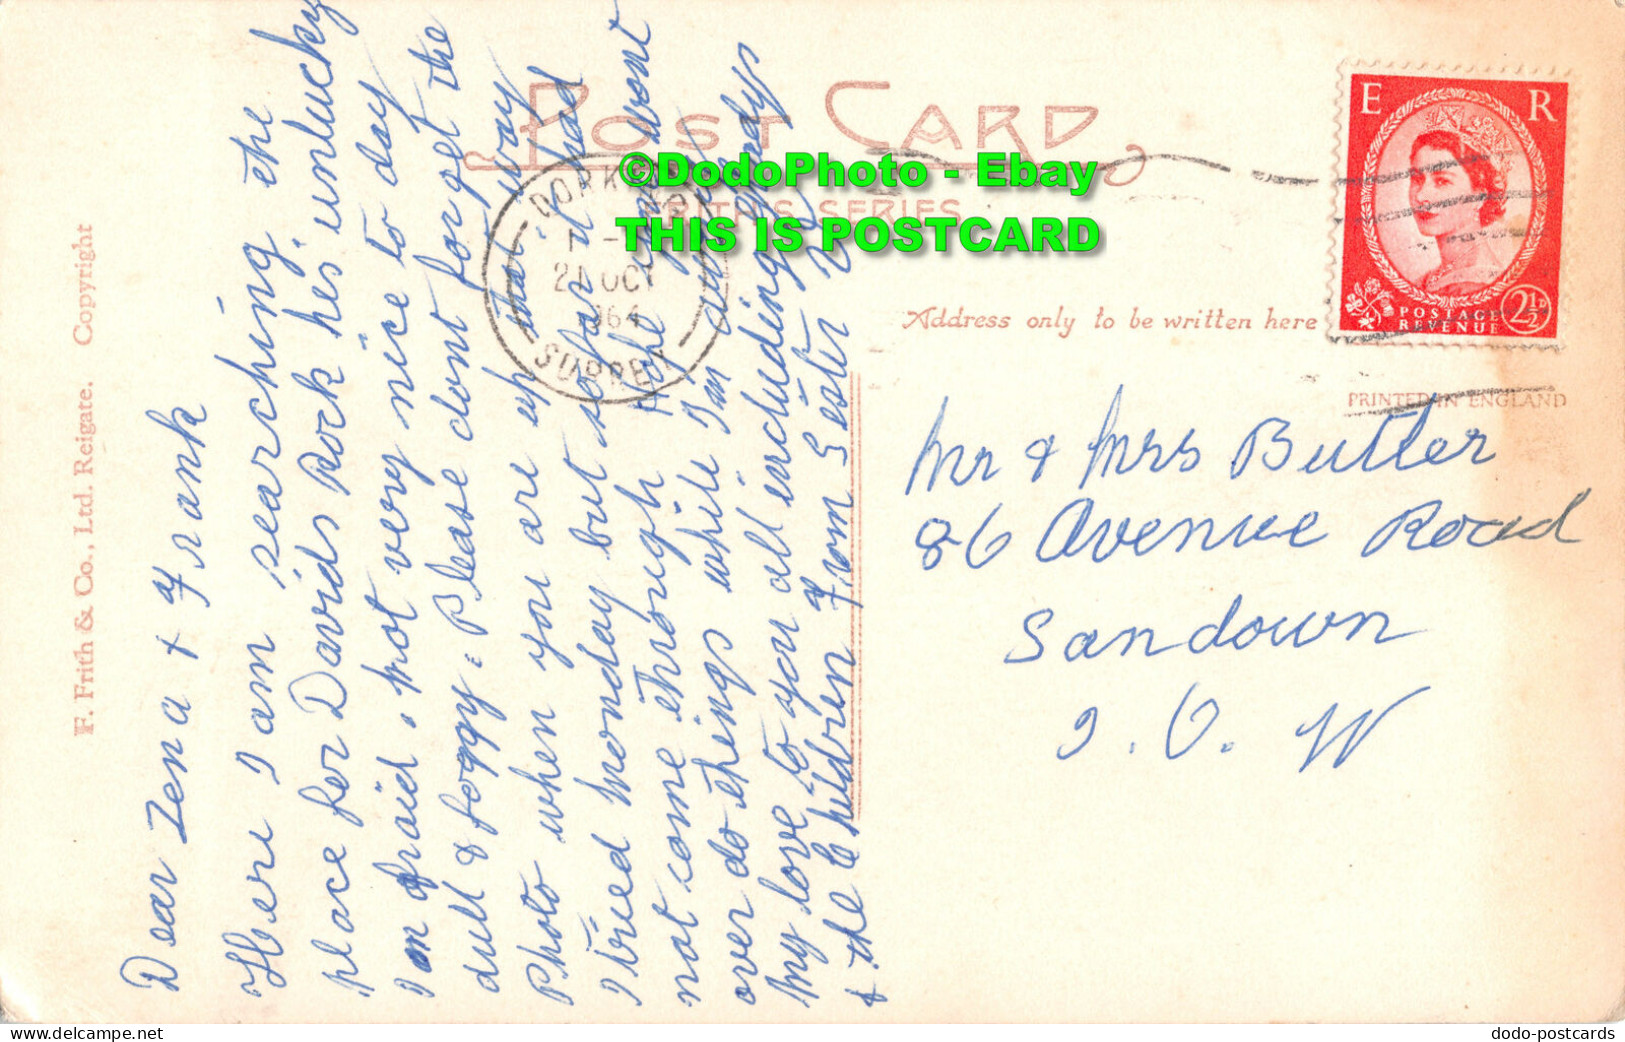 POST CARD
FRITH'S SERIES
©DodoPhoto - Ebay
THIS IS POSTCARD
DORKING
21 OCT
1964
SURREY
E R
POSTAGE
REVENUE
2½D
Address only to be written here
PRINTED IN ENGLAND
F. Frith & Co., Ltd. Reigate. Copyright
Dear Zena & Frank
Here I am searching the
place for Davids Rock hes unlucky
I am afraid. Not very nice to day
dull & foggy. Please dont forget the
Photo when you are up that way
I tried Monday but so far it had
not come through. Hope you wont
over do things while I'm away
My love to you all including Gladys
& the Children From Sister
Mr & Mrs Butler
86 Avenue Road
Sandown
I. O. W
dodo-postcards
delcampe.net